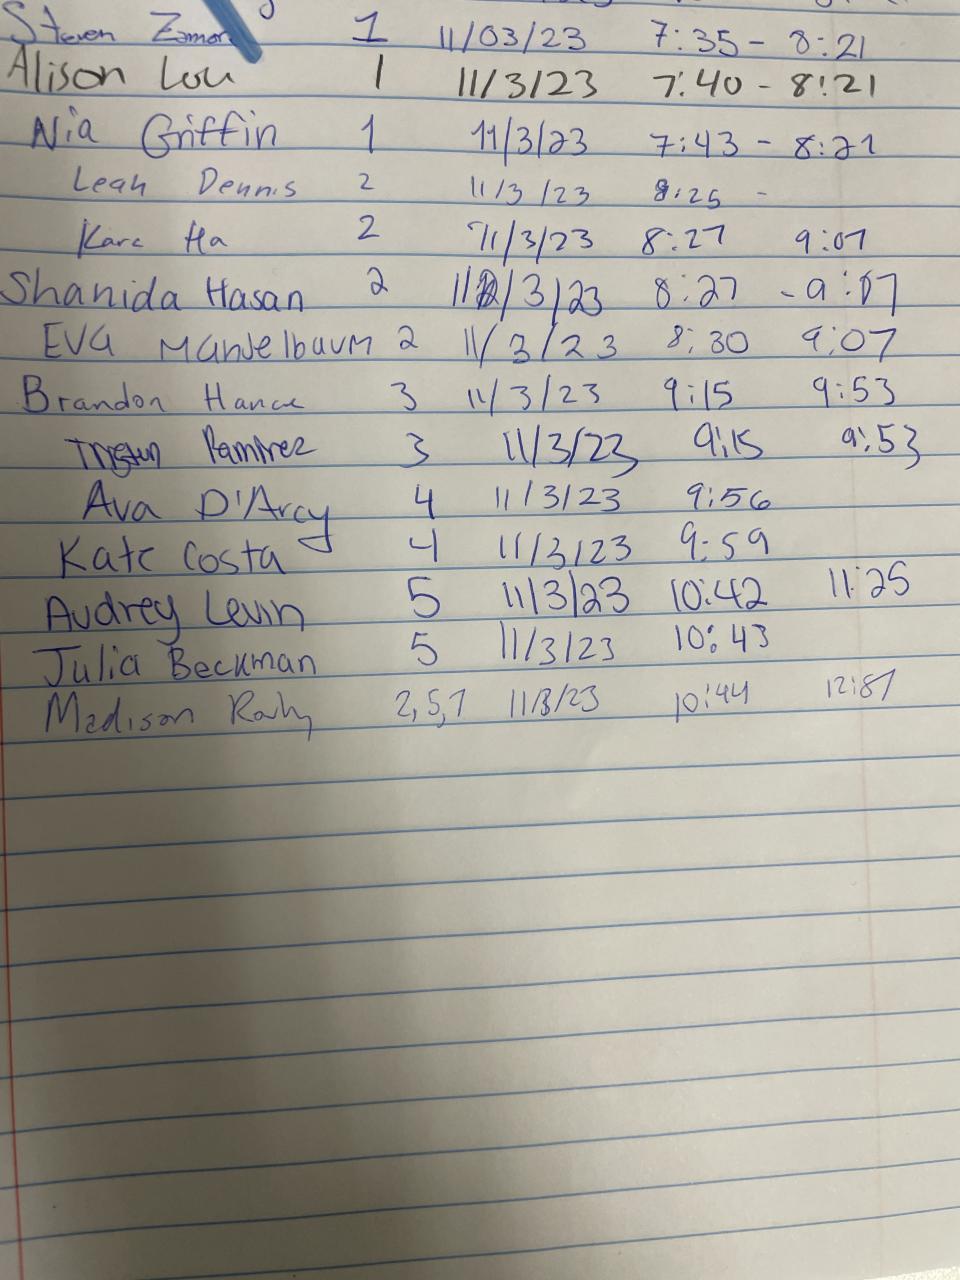 Steven 1 11/03/23 7:35 - 8:21
Alison Lou 1 11/3/23 7:40 - 8:21
Nia Griffin 1 11/3/23 7:43 - 8:21
Leah Dennis 2 11/3/23 8:25 -
Kara Ha 2 11/3/23 8:27 9:07
Shanida Hasan 2 11/3/23 8:27 - 9:07
EVA MANdelbaum 2 11/3/23 8:30 9:07
Brandon Hance 3 11/3/23 9:15 9:53
Ramirez 3 11/3/23 9:15 9:53
Ava D'Arcy 4 11/3/23 9:56
Kate Costa 4 11/3/23 9:59
Audrey Levin 5 11/3/23 10:42 11:25
Julia Beckman 5 11/3/23 10:43
Madison 2,5,7 11/3/23 10:44